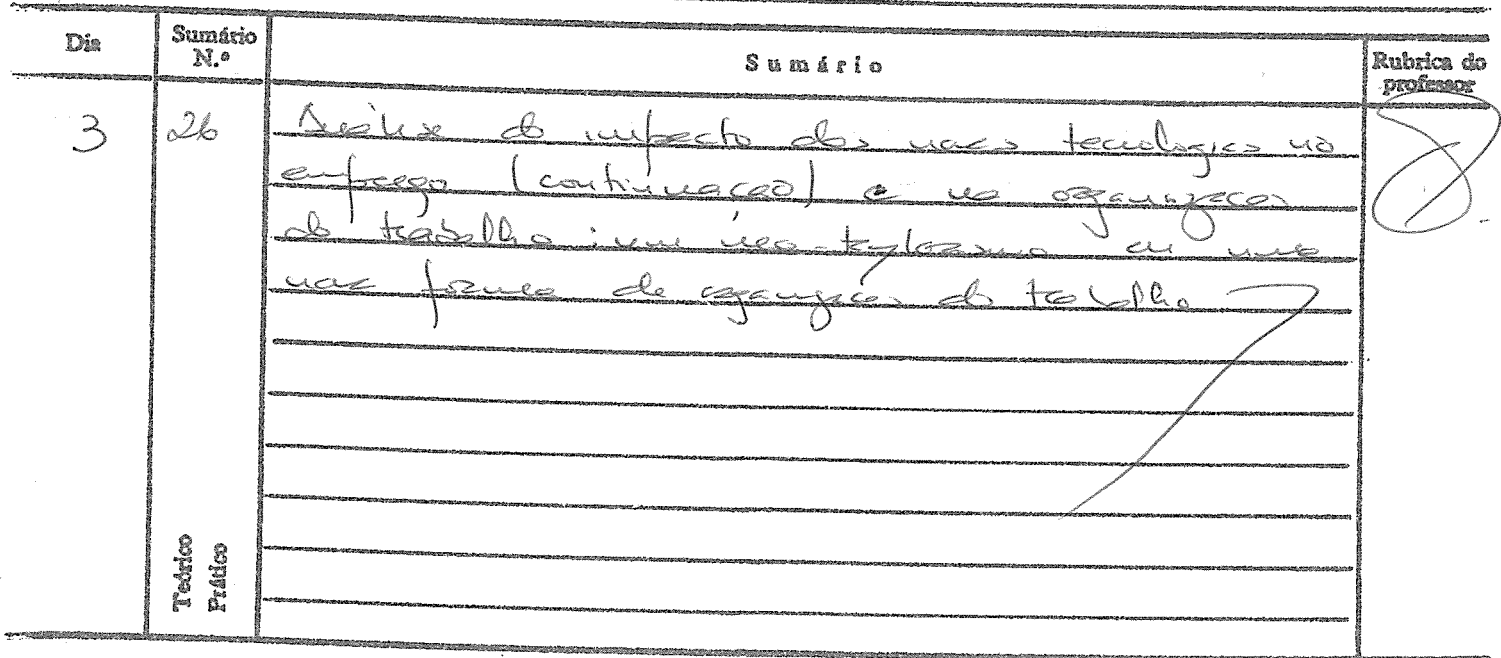 Dia
Sumário
N.º
Sumário
Rubrica do
professor
3
26
Análise do impacto das novas tecnologias no
emprego (continuação) e na organização
do trabalho: um neo-taylorismo ou uma
nova forma de organização do trabalho
Teórico
Prático